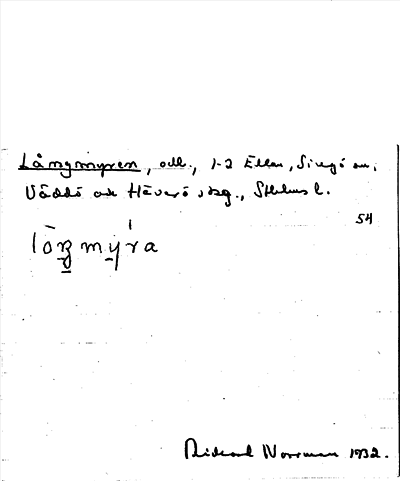 Långmyren, odl., 1-2 Ellan, Singö sn,
Väddö och Häverö skg., Sthlms l.
54
lòŋmýra
Rickard Norrman 1932.